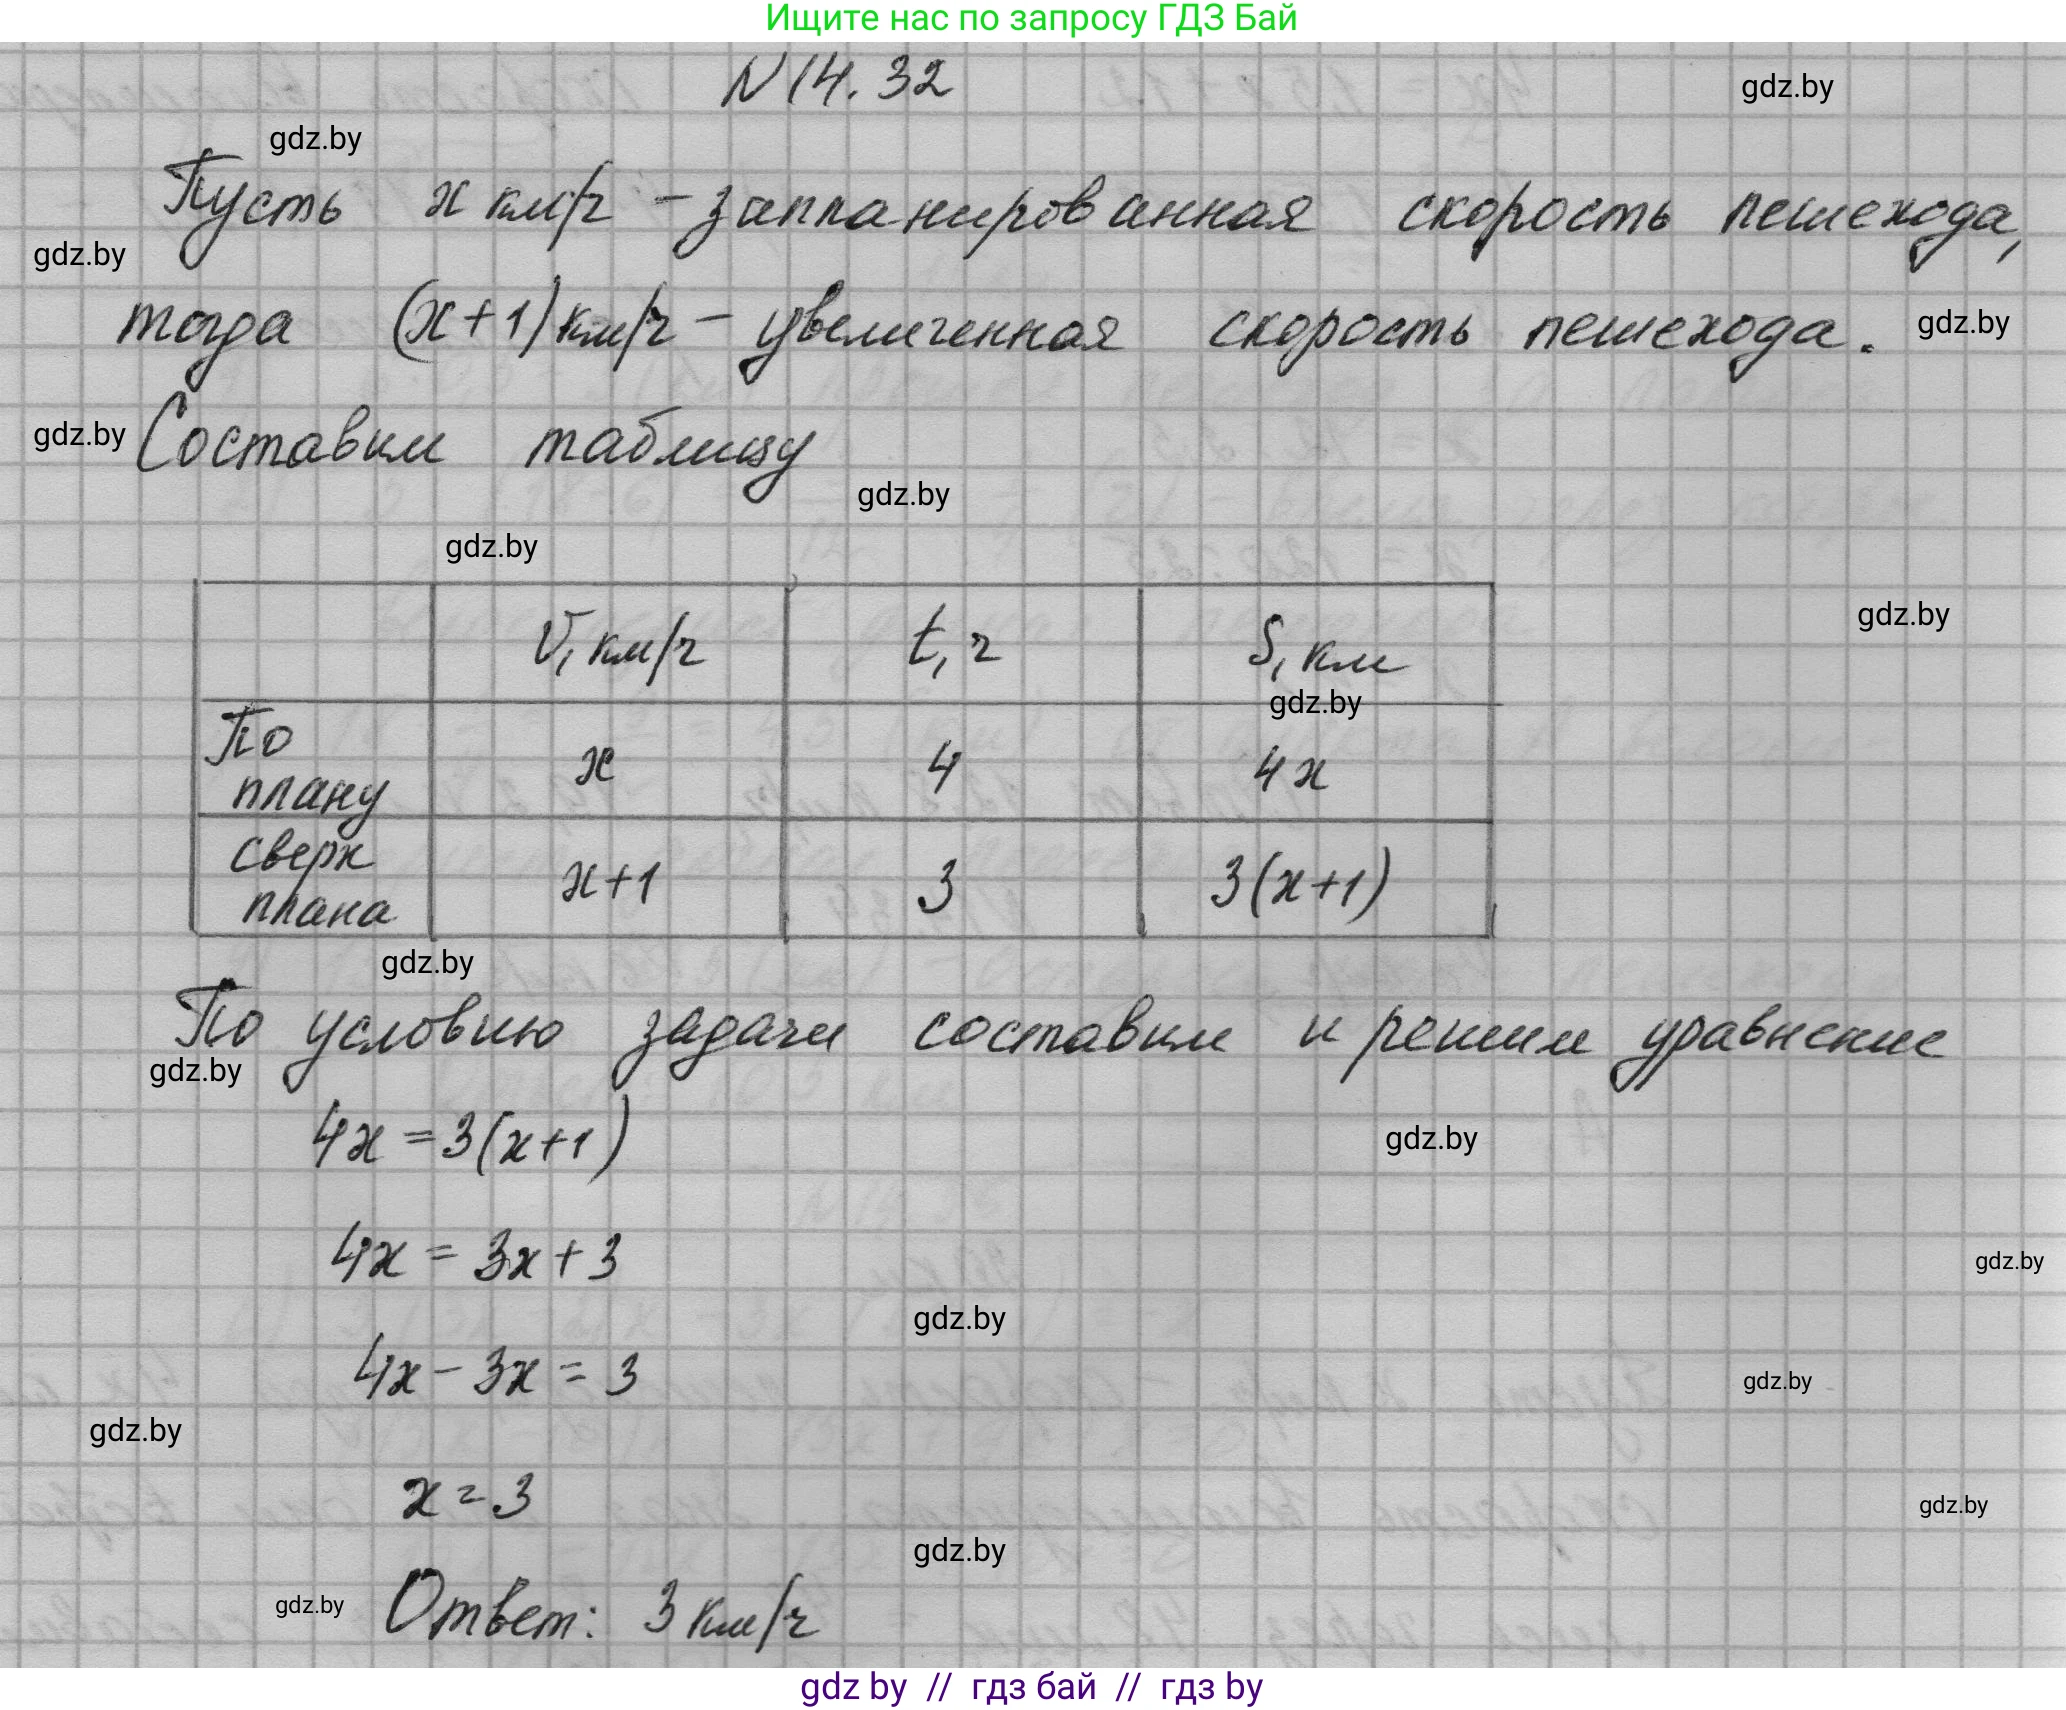 Ищите нас по запросу ГДЗ Бай
N 14.32
gdz.by
gdz.by
Пусть x км/ч - запланированная скорость пешехода,
gdz.by
тогда (x+1) км/ч - увеличенная скорость пешехода.
gdz.by
gdz.by
Составим таблицу
gdz.by
gdz.by
V, км/ч t, ч S, км
gdz.by
gdz.by
По плану x 4 4x
сверх плана x+1 3 3(x+1)
gdz.by
По условию задачи составим и решим уравнение
gdz.by
4x = 3(x+1)
gdz.by
4x = 3x + 3
gdz.by
gdz.by
4x - 3x = 3
gdz.by
gdz.by
x = 3
gdz.by
gdz.by
gdz.by
Ответ: 3 км/ч
gdz by // гдз бай // гдз by